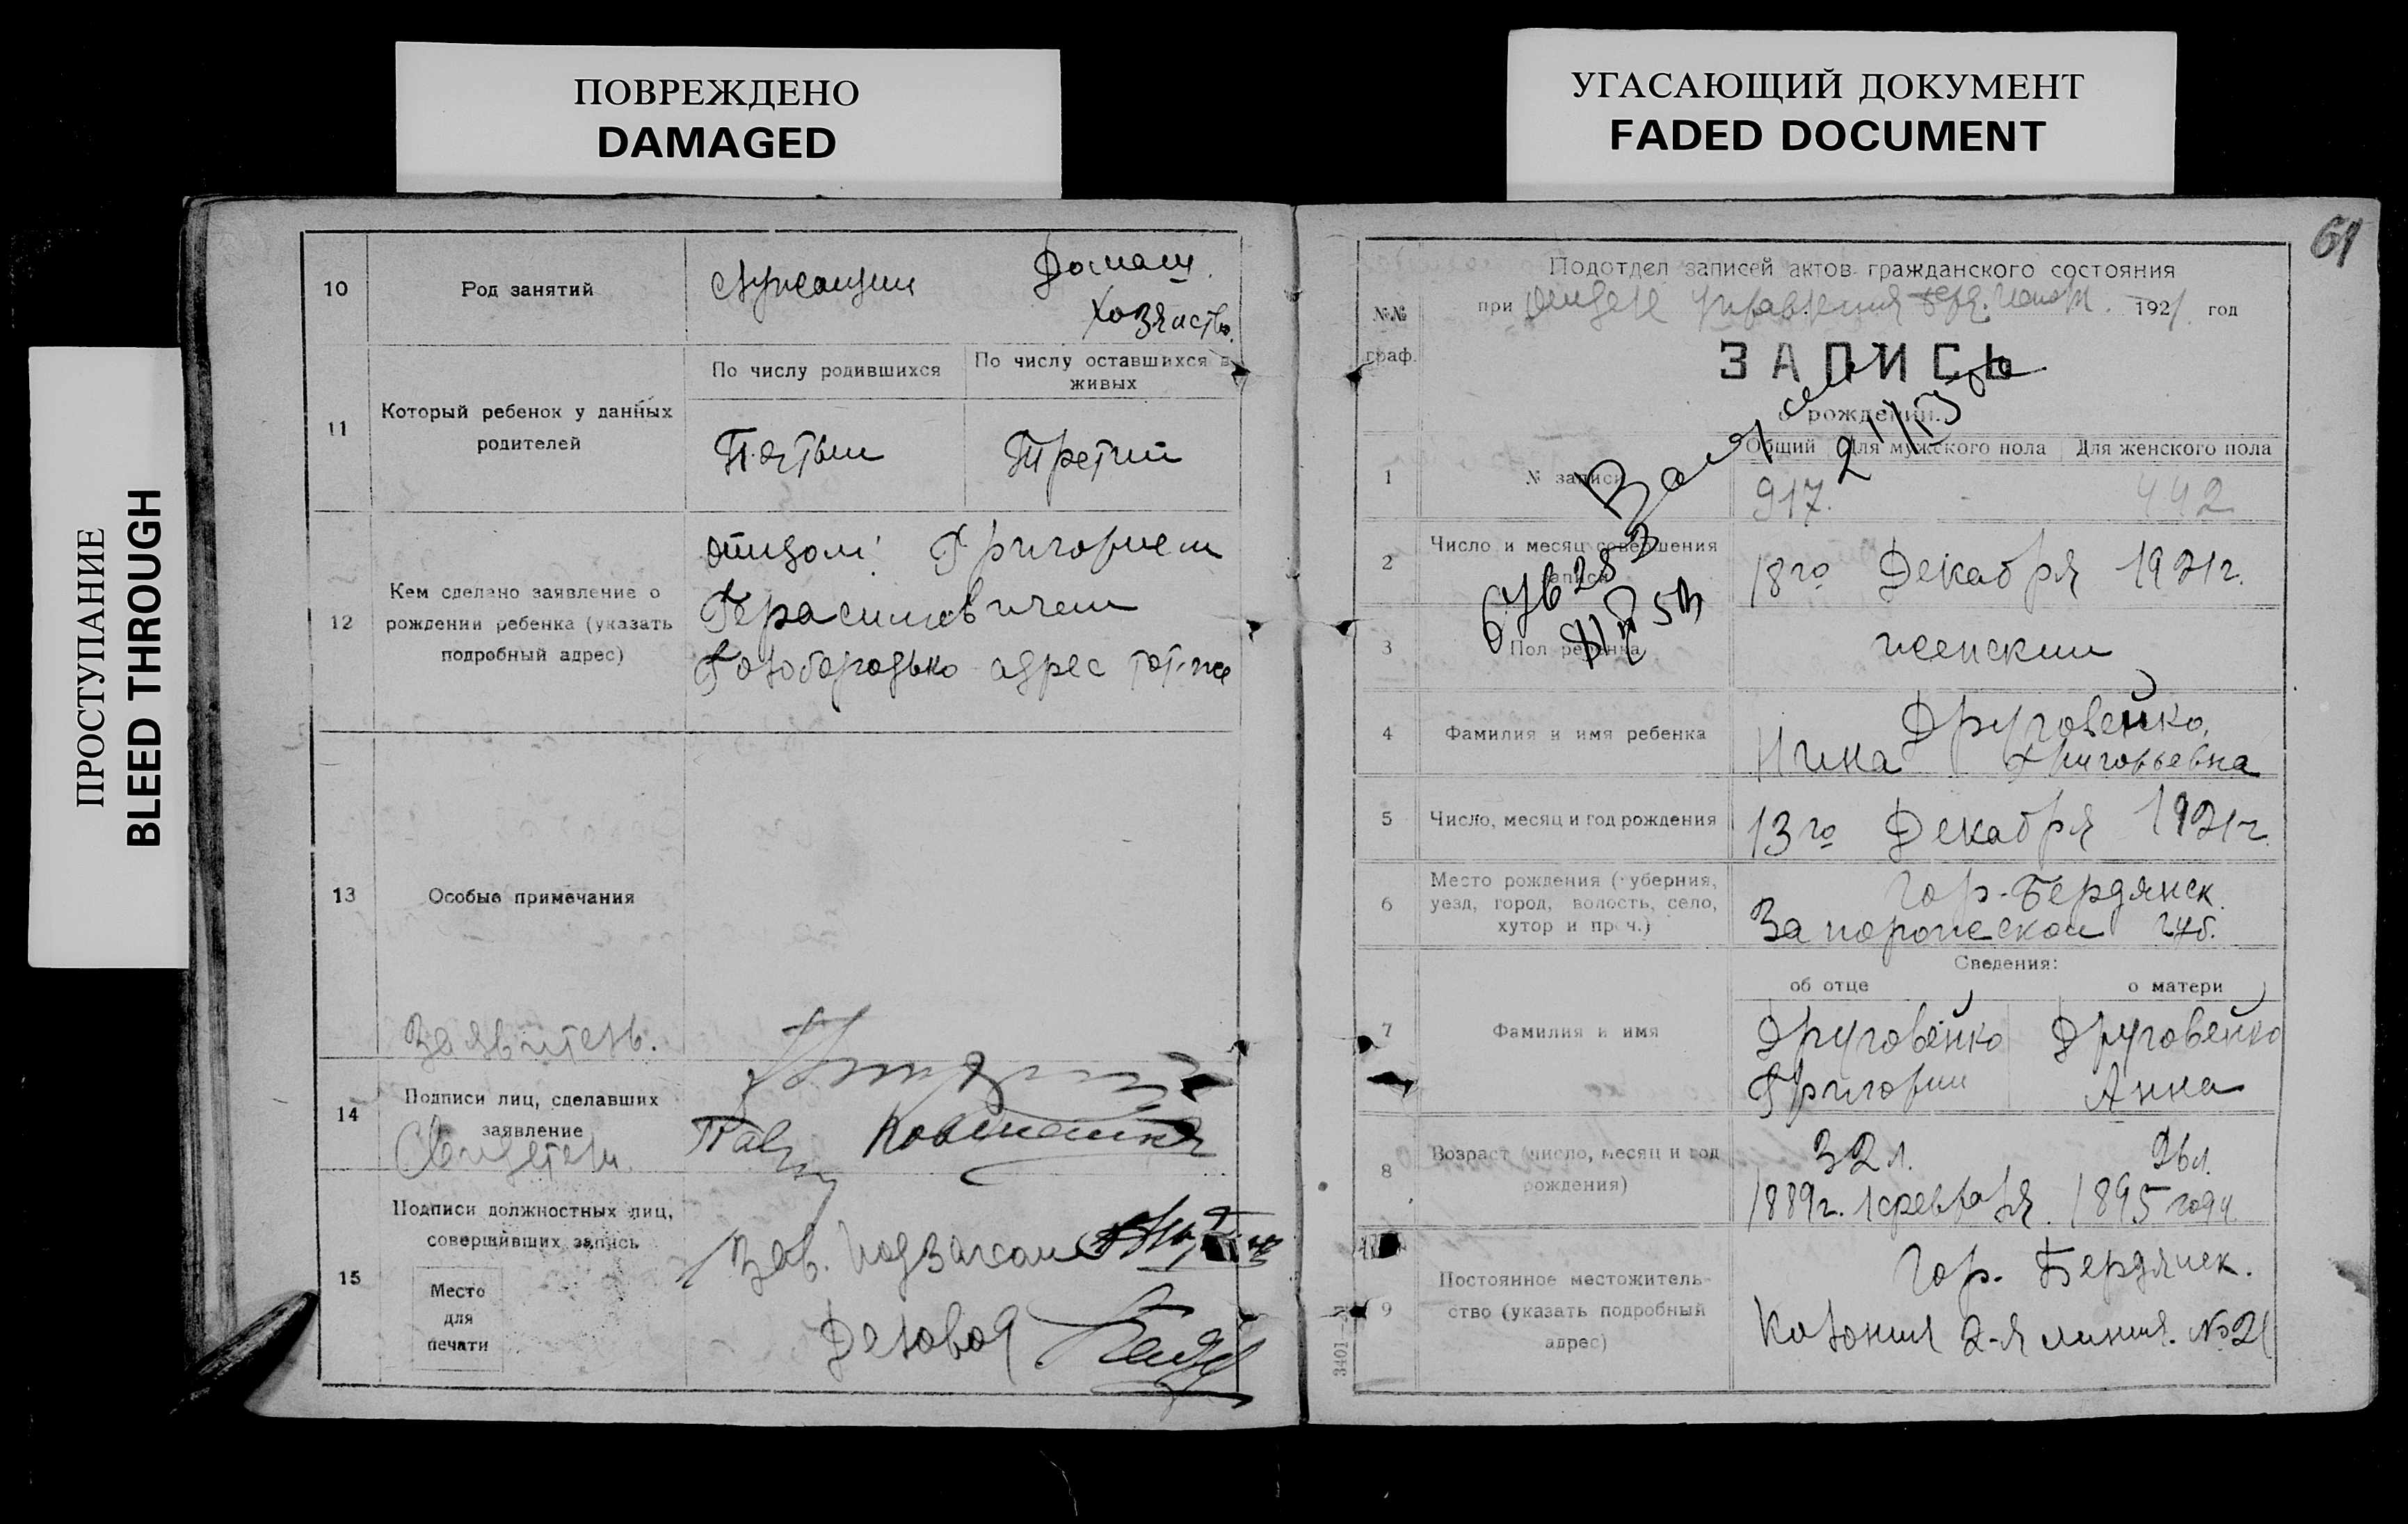 ПОВРЕЖДЕНО
DAMAGED
УГАСАЮЩИЙ ДОКУМЕНТ
FADED DOCUMENT
ПРОСТУПАНИЕ
BLEED THROUGH
10
Род занятий
служащий
Домаш.
хозяйство.
11
Который ребенок у данных
родителей
По числу родившихся
По числу оставшихся в
живых
Пятый
Третий
12
Кем сделано заявление о
рождении ребенка (указать
подробный адрес)
отцом: Григорием
Герасимовичем
Голобородько адрес тот-же
13
Особые примечания
Заявитель.
14
Подписи лиц, сделавших
заявление
Свидетели
15
Подписи должностных лиц,
совершивших запись
Место
для
печати
Зав. подзагсом
Деловод
61
№№
граф.
Подотдел записей актов гражданского состояния
при отделе управления 1921 год
ЗАПИСЬ
о рождении.
1
№ записи
Общий
Для мужского пола
Для женского пола
917.
-
442
2
Число и месяц совершения
записи
18го Декабря 1921г.
3
Пол ребенка
женский
4
Фамилия и имя ребенка
Друговейко,
Нина Григорьевна
5
Число, месяц и год рождения
13го Декабря 1921г.
6
Место рождения (губерния,
уезд, город, волость, село,
хутор и проч.)
Гор-Бердянск.
Запорожской губ.
Сведения:
об отце
о матери
7
Фамилия и имя
Друговейко
Григорий
Друговейко
Анна
8
Возраст (число, месяц и год
рождения)
32 л.
1889г. 1 февраля.
26 л.
1895 года
9
Постоянное местожитель-
ство (указать подробный
адрес)
Гор. Бердянск.
Колония 2-я линия. № 21